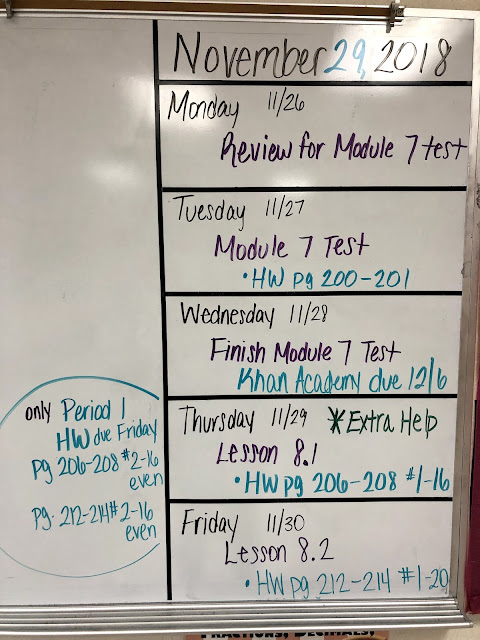 November 29, 2018
Monday 11/26
Review for Module 7 test
Tuesday 11/27
Module 7 Test
• HW pg 200-201
Wednesday 11/28
Finish Module 7 Test
Khan Academy due 12/6
Thursday 11/29 *Extra Help
Lesson 8.1
• HW pg 206-208 #1-16
Friday 11/30
Lesson 8.2
• HW pg 212-214 #1-20
only Period 1
HW due Friday
pg 206-208 #2-16
even
pg. 212-214 #2-16
even
FRACTIONS, DECIMALS,